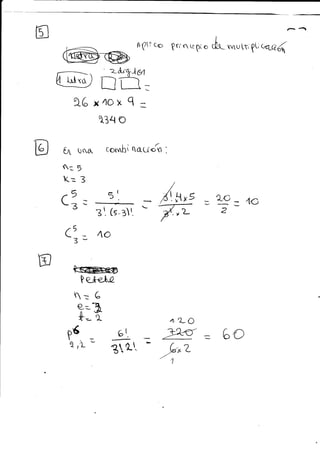 5
Aplico principio de multiplicación
1 letra 2 dígitos
26 x 10 x 9 =
2340
6 Es una combinación:
n = 5
k = 3
C 5 3 = 5! / 3! (5-3)! = 3! 4x5 / 3! x 2 = 20 / 2 = 10
C 5 3 = 10
7
Petete
n = 6
e = 3
t = 2
P 6 = 6! / 3! 2! = 720 / 6x2 = 60
120
1